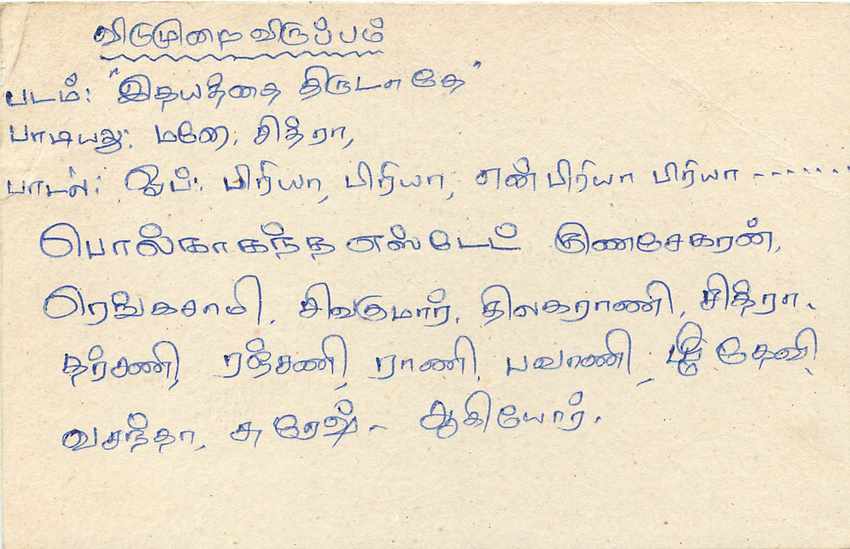 விடுமுறை விருப்பம்
படம்: "இதயத்தை திருடாதே"
பாடியது: மனோ, சித்ரா,
பாடல்: ஓப்: பிரியா, பிரியா, என் பிரியா பிரியா -------
பொல்காகந்த எஸ்டேட் குணசேகரன்,
ரெங்கசாமி, சிவகுமார், திலகராணி, சித்ரா.
தர்சணி, ரஜ்சணி, ராணி, பவாணி, ஸ்ரீ தேவி,
வசந்தா, சுரேஷ் - ஆகியோர்.